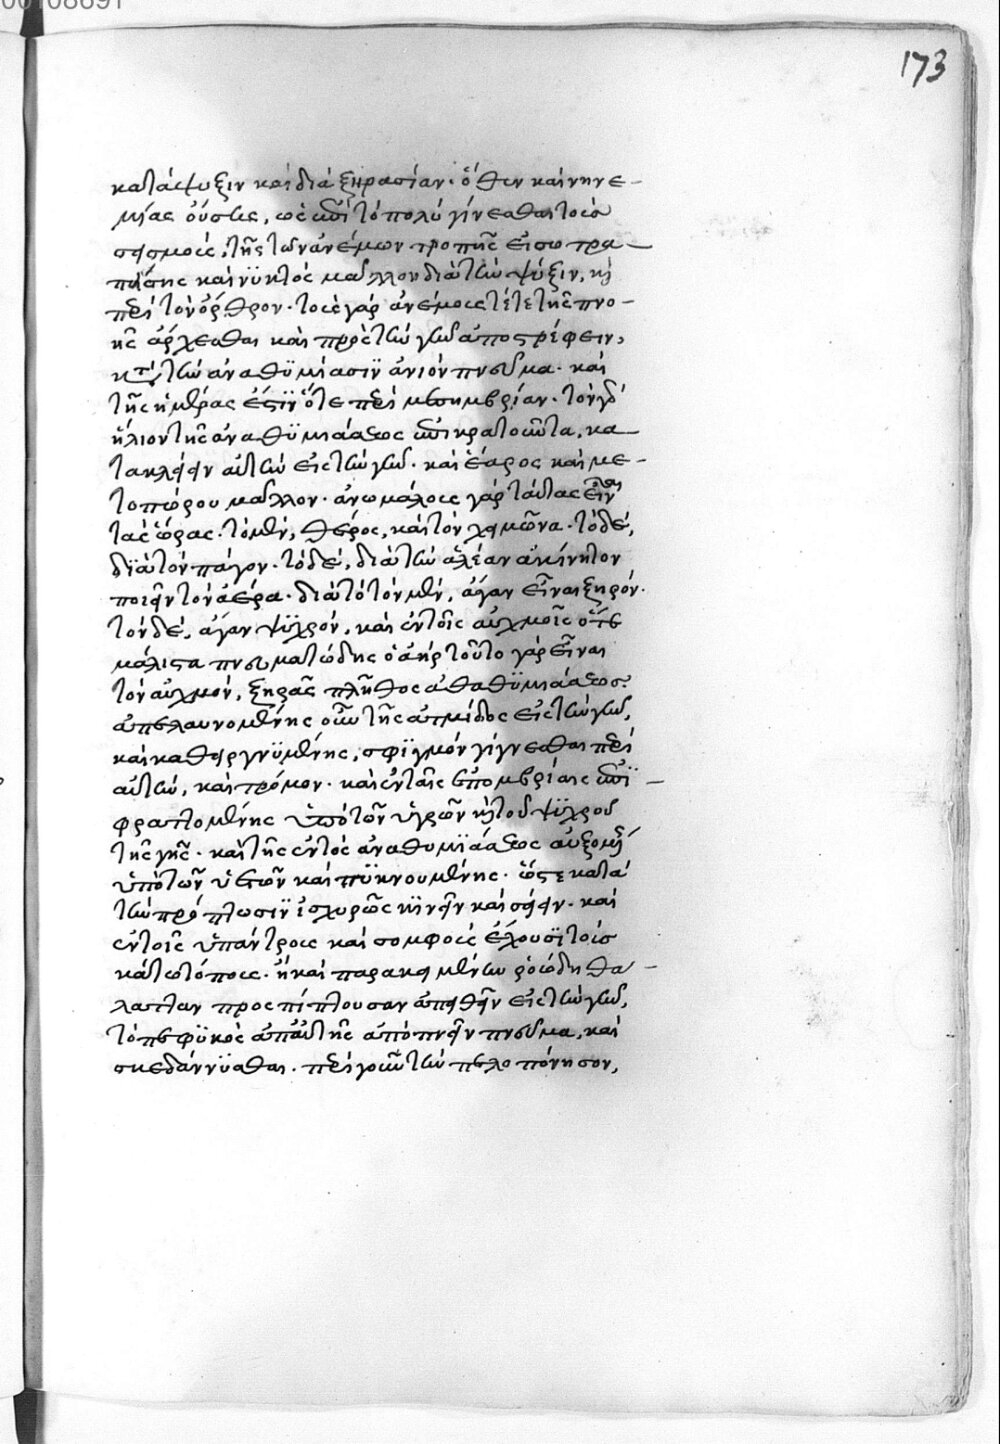 173
κατάψυξιν καὶ διὰ ξηρασίαν. ὅθεν καὶ νηνε-
μίας οὔσης, ὡς ἐπὶ τὸ πολὺ γίνεσθαι τοὺς
σεισμοὺς, τῆς τῶν ἀνέμων τροπῆς εἴσω τρα-
πείσης καὶ νυκτὸς μᾶλλον διὰ τὴν ψύξιν, καὶ
περὶ τὸν ὄρθρον. τοὺς γὰρ ἀνέμους τότε τῆς πνο-
ῆς ἄρχεσθαι καὶ πρὸς τὴν γῆν ἀποστρέφειν,
κατὰ τὴν ἀναθυμίασιν ἀνιὸν πνεῦμα. καὶ
τῆς ἡμέρας ἔστιν ὅτε περὶ μεσημβρίαν. τὸν γὰρ
ἥλιον τῆς ἀναθυμιάσεως ἐπικρατοῦντα, κα-
τακλείειν αὐτὴν εἰς τὴν γῆν. καὶ ἔαρος καὶ με-
τοπώρου μᾶλλον. ἀνωμάλους γὰρ ταύτας εἶναι
τὰς ὥρας. τὸ μὲν, θέρος, καὶ τὸν χειμῶνα. τὸ δὲ,
διὰ τὸν πάγον. τὸ δὲ, διὰ τὴν ἀλέαν ἀκίνητον
ποιεῖν τὸν ἀέρα. διὰ τὸ τὸν μὲν, ἄγαν εἶναι ξηρόν.
τὸν δὲ, ἄγαν ψυχρόν, καὶ ἐν τοῖς αὐχμοῖς ὅτε
μάλιστα πνευματώδης ὁ ἀὴρ τοῦτο γὰρ εἶναι
τὸν αὐχμόν, ξηρᾶς πλῆθος ἀναθυμιάσεως.
ἀπελαυνομένης οὖν τῆς ἀτμίδος εἰς τὴν γῆν,
καὶ καθειργνυμένης, σφιγμόν γίγνεσθαι περὶ
αὐτὴν, καὶ τρόμον. καὶ ἐν ταῖς ἐπομβρίαις ἐπι-
φραττομένης ὑπὸ τῶν ὑγρῶν καὶ τοῦ ψυχροῦ
τῆς γῆς. καὶ τῆς ἐντὸς ἀναθυμιάσεως αὐξομένης
ὑπὸ τῶν ὑετῶν καὶ πυκνουμένης. ὥστε κατὰ
τὴν πρόπτωσιν ἰσχυρῶς κινεῖν καὶ σείειν. καὶ
ἐν τοῖς ὑπάντροις καὶ σομφοὺς ἔχουσι τοὺς
κάτω τόπους. ἢ καὶ παρακειμένην ῥοώδη θά-
λατταν προσπίπτουσαν ἀπωθεῖν εἰς τὴν γῆν,
τὸ πεφυκὸς ἀπ' αὐτῆς ἀποπνεῖν πνεῦμα, καὶ
σκεδάννυσθαι. περὶ γοῦν τὴν πελοπόννησον,